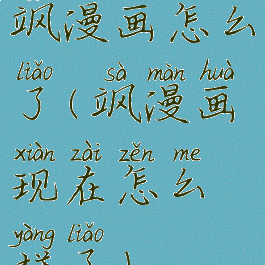 飒漫画怎么
liǎo sà màn huà
了(飒漫画
xiàn zài zěn me
现在怎么
yàng liǎo
样了)